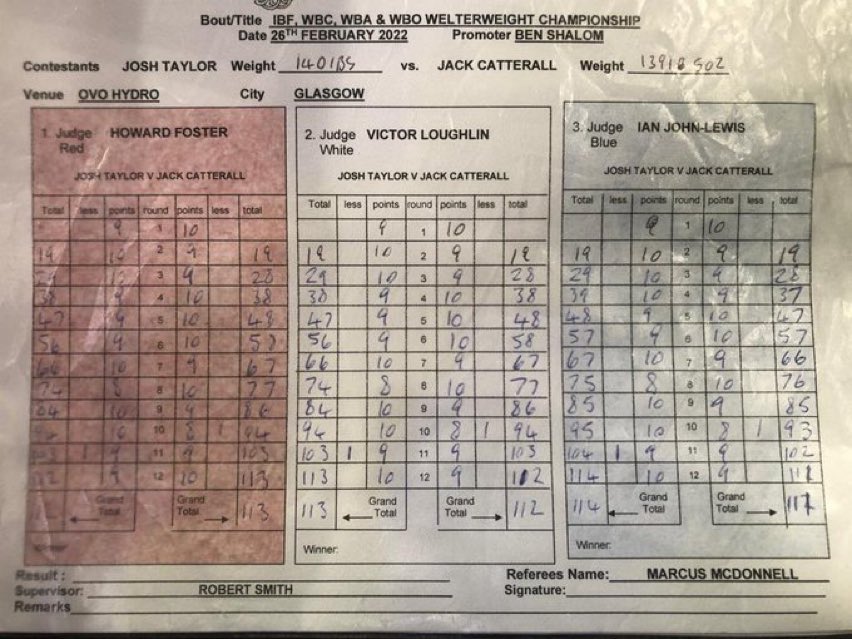 Bout/Title IBF, WBC, WBA & WBO WELTERWEIGHT CHAMPIONSHIP
Date 26TH FEBRUARY 2022 Promoter BEN SHALOM
Contestants JOSH TAYLOR Weight 140lbs vs. JACK CATTERALL Weight 139lb 5oz
Venue OVO HYDRO City GLASGOW
1. Judge HOWARD FOSTER
Red
JOSH TAYLOR V JACK CATTERALL
Total less points round points less total
9 1 10
19 10 2 9 19
29 10 3 9 28
38 9 4 10 38
47 9 5 10 48
56 9 6 10 58
66 10 7 9 67
74 8 8 10 77
84 10 9 9 86
94 10 10 8 1 94
103 1 9 11 9 103
112 9 12 10 113
Grand Total Grand Total 113
2. Judge VICTOR LOUGHLIN
White
JOSH TAYLOR V JACK CATTERALL
Total less points round points less total
9 1 10
19 10 2 9 19
29 10 3 9 28
38 9 4 10 38
47 9 5 10 48
56 9 6 10 58
66 10 7 9 67
74 8 8 10 77
84 10 9 9 86
94 10 10 8 1 94
103 1 9 11 9 103
113 10 12 9 112
113 Grand Total Grand Total 112
Winner:
3. Judge IAN JOHN-LEWIS
Blue
JOSH TAYLOR V JACK CATTERALL
Total less points round points less total
9 1 10
19 10 2 9 19
29 10 3 9 28
39 10 4 9 37
48 9 5 10 47
57 9 6 10 57
67 10 7 9 66
75 8 8 10 76
85 10 9 9 85
95 10 10 8 1 93
104 1 9 11 9 102
114 10 12 9 111
114 Grand Total Grand Total 111
Winner:
Result :
Supervisor: ROBERT SMITH
Remarks
Referees Name: MARCUS MCDONNELL
Signature: